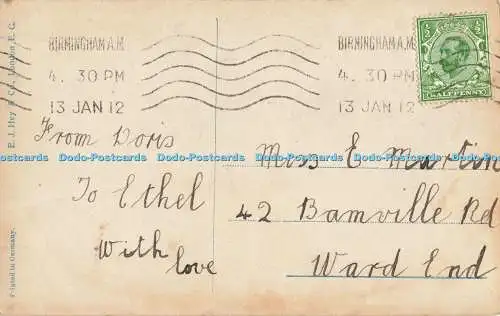 BIRMINGHAM A.M.
4. 30 PM
13 JAN 12
BIRMINGHAM A.M.
4. 30 PM
13 JAN 12
HALFPENNY
E. J. Hey & Co., London, E. C.
Printed in Germany.
From Doris
To Ethel
With
love
Miss E Martin
42 Bamville Rd
Ward End
Dodo-Postcards Dodo-Postcards Dodo-Postcards Dodo-Postcards Dodo-Postcards Dodo-Postcards